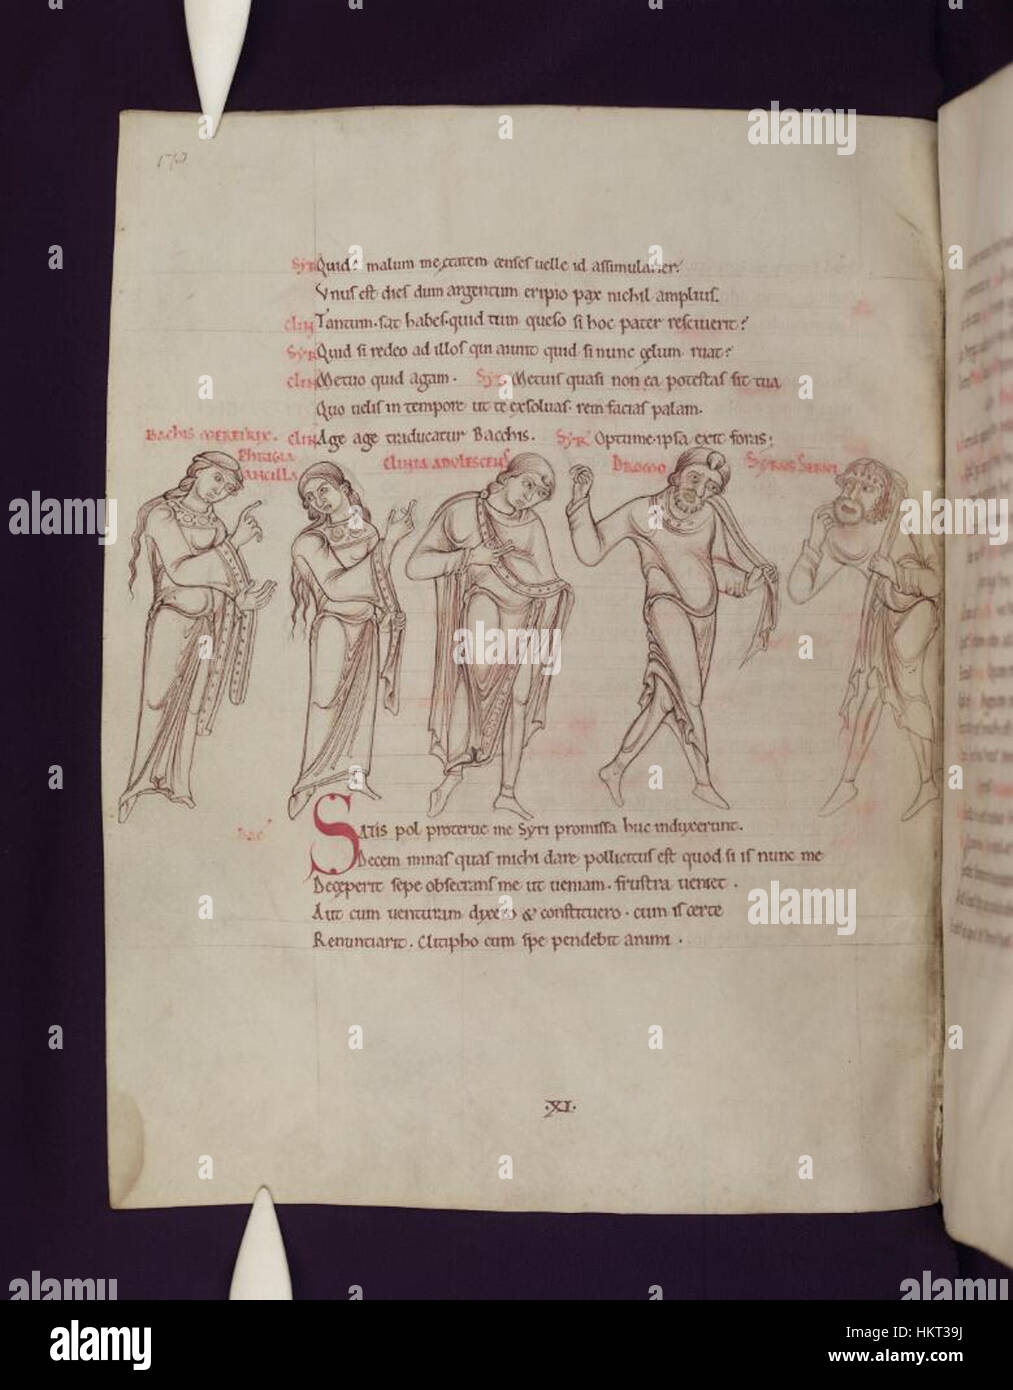 170
Syr Quid? malum me ætatem censes uelle id assimularier?
Vnus est dies dum argentum eripio pax nichil amplius.
Clin Tantum sat habes. quid tum queso si hoc pater resciuerit?
Syr Quid si redeo ad illos qui aiunt quid si nunc celum ruat?
Clin Metuo quid agam. Syr Metuis quasi non ea potestas sit tua
Quo uelis in tempore ut te exsoluas. rem facias palam.
Clin Age age traducatur Bacchis. Syr Optume. ipsa exit foras;
Bachis meretrix. Phrigia ancilla Clinia adolescens Dromo Syrus Servi
Bac
Satis pol proterue me Syri promissa huc induxerunt.
Decem minas quas michi dare pollicitus est quod si is nunc me
Deceperit sepe obsecrans me ut ueniam. frustra ueniet.
Aut cum uenturum dixero & constituero. cum is certe
Renuntiarit. Clitipho cum spe pendebit animi.
·XI·
alamy
Image ID: HKT39J
www.alamy.com